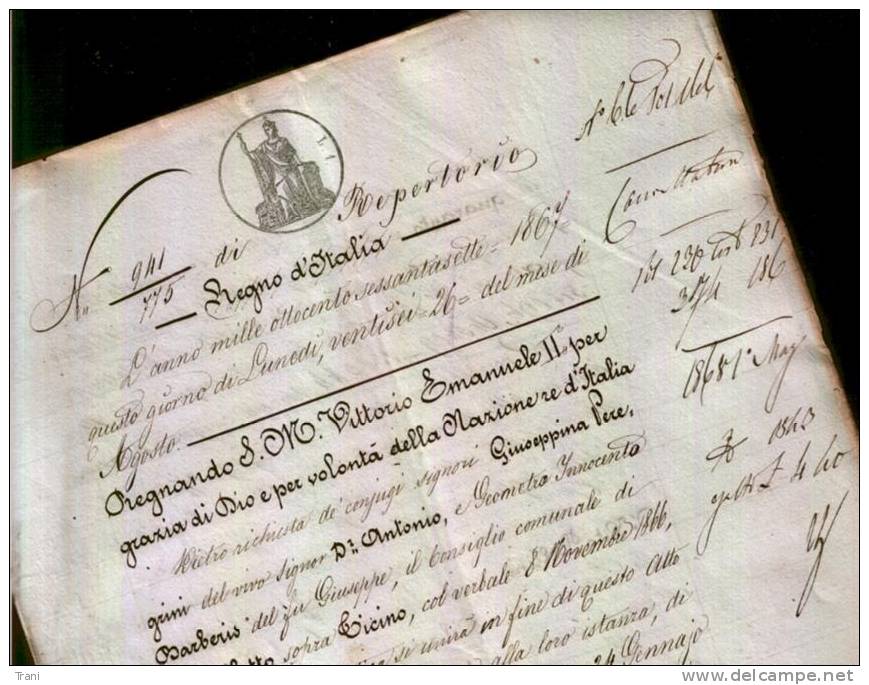 N. 941 di Repertorio
775
Regno d'Italia
L'anno mille ottocento sessantasette = 1867
questo giorno di Lunedì, ventisei = 26 = del mese di
Agosto.
Regnando S. M. Vittorio Emanuele II. per
grazia di Dio e per volontà della Nazione re d'Italia
Dietro richiesta de' conjugi signori Giuseppina Pere,
grini del vivo signor Dr. Antonio, e Geometra Innocento
Barberis del fu Giuseppe, il Consiglio comunale di
sopra Ticino, col verbale 8 Novembre 1866,
si unirà in fine di questo Atto
alla loro istanza, di
24 Gennajo
161 230 231
374 186
1868 1° Mag
1843
4 40
Trani
www.delcampe.net